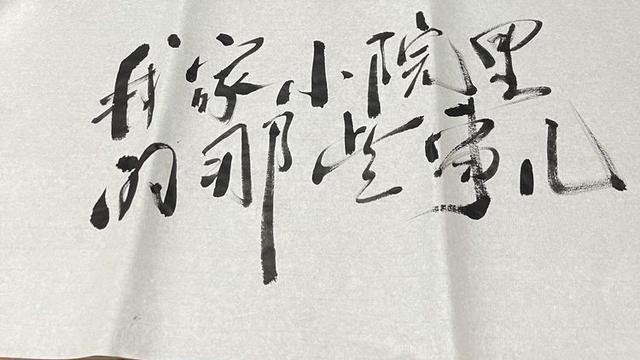 我家小院里
的那些事儿